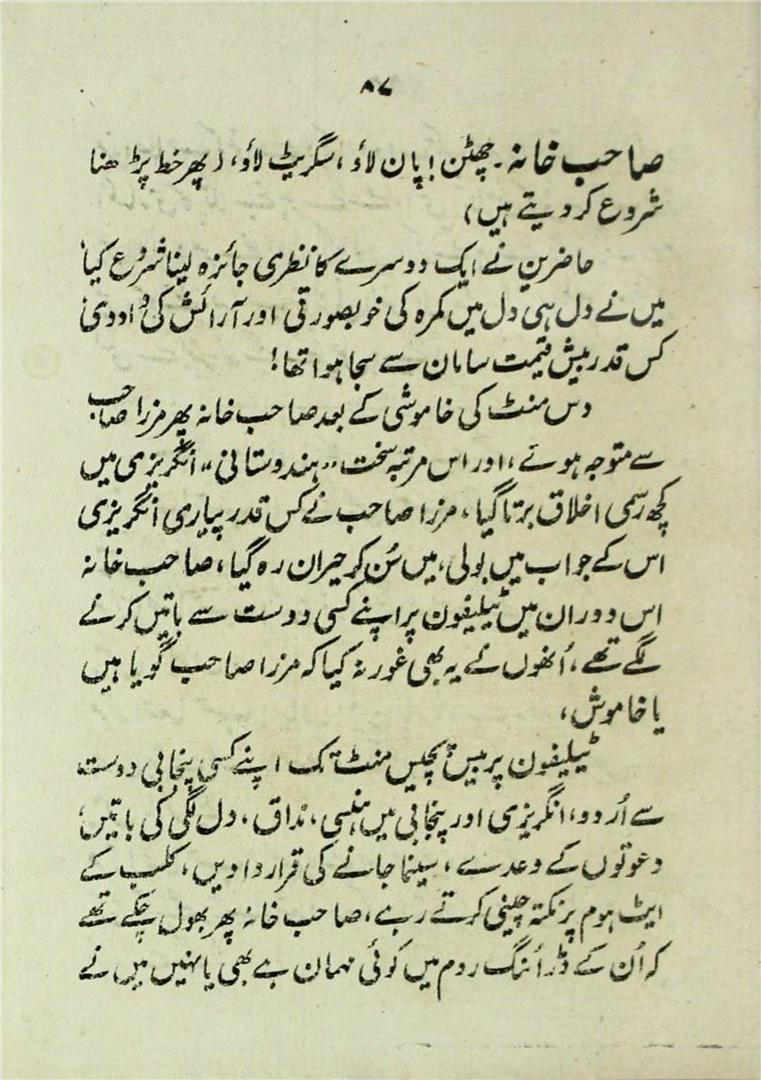 ۸۷
صاحب خانہ۔ چھٹن! پان لاؤ، سگریٹ لاؤ، (پھر خط پڑھنا
شروع کر دیتے ہیں)
حاضرین نے ایک دوسرے کا نظری جائزہ لینا شروع کیا
میں نے دل ہی دل میں کمرہ کی خوبصورتی اور آرائش کی داد دی
کس قدر بیش قیمت سامان سے سجا ہوا تھا!
دس منٹ کی خاموشی کے بعد صاحب خانہ پھر مرزا صاحب
سے متوجہ ہوئے، اور اس مرتبہ سخت ،،ہندوستانی،، انگریزی میں
کچھ رسمی اخلاق برتا گیا، مرزا صاحب نے کس قدر پیاری انگریزی
اس کے جواب میں بولی، میں سُن کر حیران رہ گیا، صاحب خانہ
اس دوران میں ٹیلیفون پر اپنے کسی دوست سے باتیں کرنے
لگے تھے، اُنھوں نے یہ بھی غور نہ کیا کہ مرزا صاحب گویا ہیں
یا خاموش،
ٹیلیفون پر بیس پچیس منٹ تک اپنے کسی پنجابی دوست
سے اُردو، انگریزی اور پنجابی میں ہنسی، مذاق، دل لگی کی باتیں،
دعوتوں کے وعدے، سینما جانے کی قراردادیں، کلب کے
ایٹ ہوم پر نکتہ چینی کرتے رہے، صاحب خانہ پھر بھول چکے تھے
کہ اُن کے ڈرائنگ روم میں کوئی مہمان ہے بھی یا نہیں میں نے